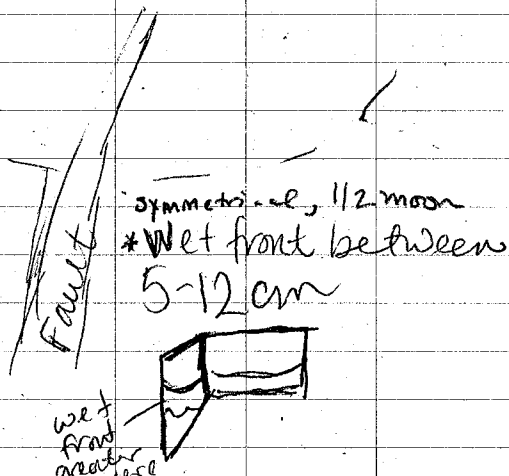 symmetrical, 1/2 moon
*Wet front between
5-12 cm
Fault
wet
front
greater
here